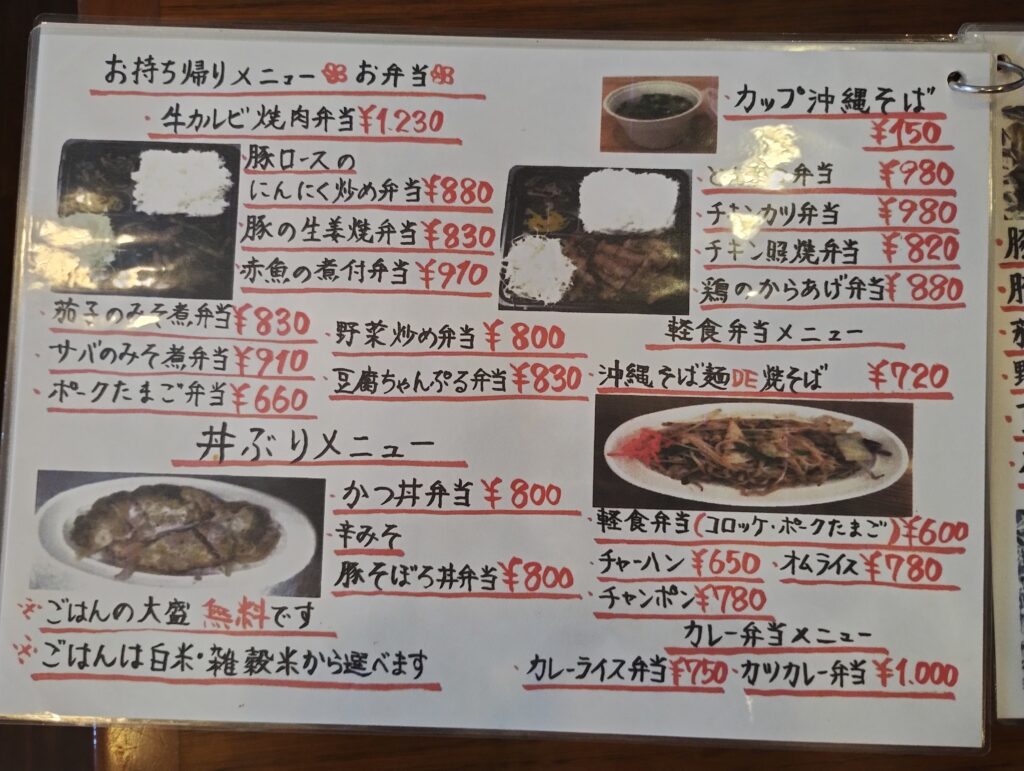 お持ち帰りメニュー お弁当
・牛カルビ焼肉弁当 ¥1.230
・豚ロースの
にんにく炒め弁当 ¥880
・豚の生姜焼弁当 ¥830
・赤魚の煮付弁当 ¥910
・茄子のみそ煮弁当 ¥830
・サバのみそ煮弁当 ¥910
・ポークたまご弁当 ¥660
・野菜炒め弁当 ¥800
・豆腐ちゃんぷる弁当 ¥830
・カップ沖縄そば
¥150
弁当 ¥980
・チキンカツ弁当 ¥980
・チキン照焼弁当 ¥820
・鶏のからあげ弁当 ¥880
軽食弁当メニュー
・沖縄そば麺DE焼そば ¥720
・軽食弁当(コロッケ・ポークたまご) ¥600
・チャーハン ¥650 ・オムライス ¥780
・チャンポン ¥780
カレー弁当メニュー
・カレーライス弁当 ¥750 ・カツカレー弁当 ¥1.000
丼ぶりメニュー
・かつ丼弁当 ¥800
・辛みそ
豚そぼろ丼弁当 ¥800
※ごはんの大盛 無料です
※ごはんは白米・雑穀米から選べます